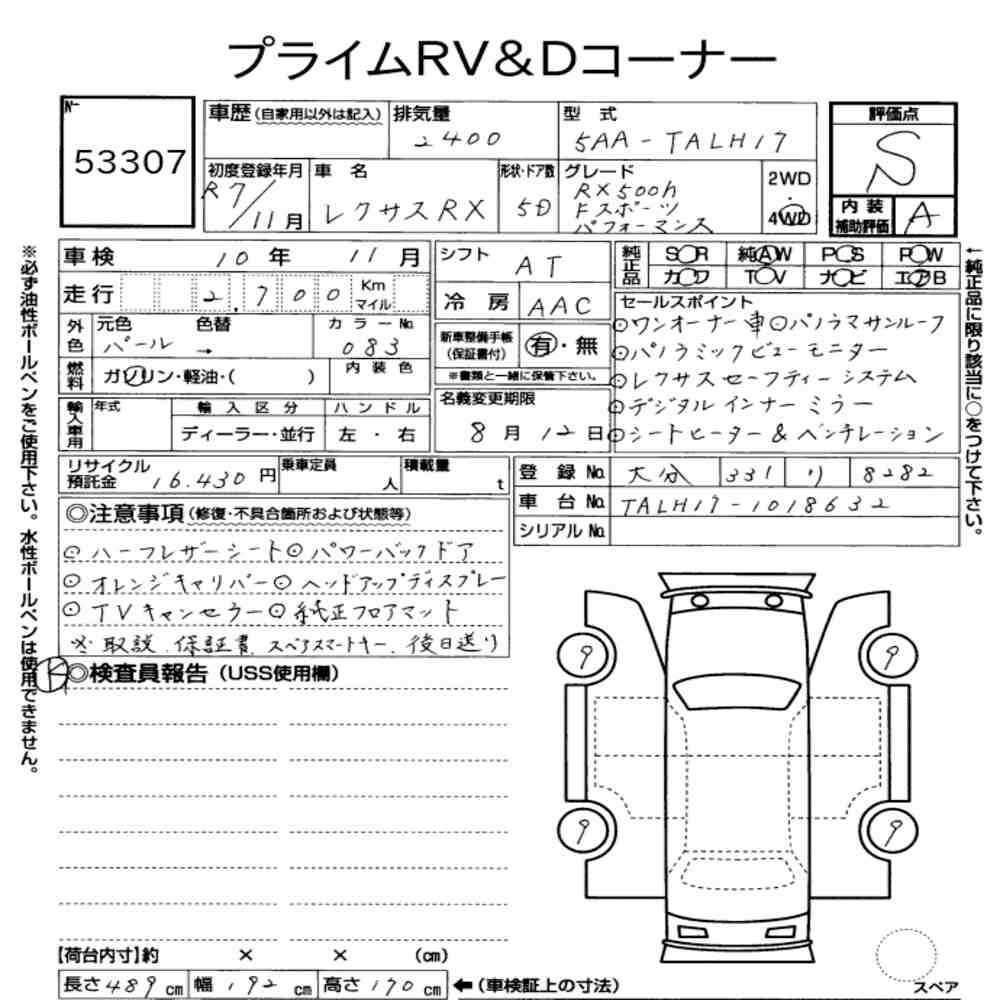 プライムRV&Dコーナー
№
53307
車歴(自家用以外は記入)
排気量
2400
型 式
5AA-TALH17
評価点
S
初度登録年月
R7/11月
車 名
レクサスRX
形状・ドア数
5D
グレード
RX500h
Fスポーツ
パフォーマンス
2WD
4WD
内 装
補助評価
A
※必ず油性ボールペンをご使用下さい。水性ボールペンは使用できません。
車検 10年 11月
シフト AT
純正品
SOR 純AW POS POW
カワ TOV ナビ エアB
←純正品に限り該当に○をつけて下さい。
走行 2,700 Km マイル
冷 房 AAC
セールスポイント
⊙ワンオーナー車⊙パノラマサンルーフ
⊙パノラミックビューモニター
⊙レクサスセーフティーシステム
⊙デジタルインナーミラー
⊙シートヒーター&ベンチレーション
外色
元色 色替
パール →
カラーNo.
083
新車整備手帳
(保証書付)
有・無
※書類と一緒に保管下さい。
燃料
ガソリン・軽油・( )
内 装 色
輸入車用
年式
輸 入 区 分
ディーラー・並行
ハ ン ド ル
左 ・ 右
名義変更期限
8月12日
リサイクル
預託金 16,430円
乗車定員
人
積載量
t
登 録 No. 大分 331 り 8282
車 台 No. TALH17-1018632
シリアル No.
◎注意事項(修復・不具合箇所および状態等)
⊙ハーフレザーシート⊙パワーバックドア
⊙オレンジキャリパー⊙ヘッドアップディスプレー
⊙TVキャンセラー⊙純正フロアマット
※取説、保証書、スペアスマートキー、後日送り
◎検査員報告(USS使用欄)
9
9
9
9
【荷台内寸】約 × × (cm)
長さ489cm 幅192cm 高さ170cm
←(車検証上の寸法)
スペア